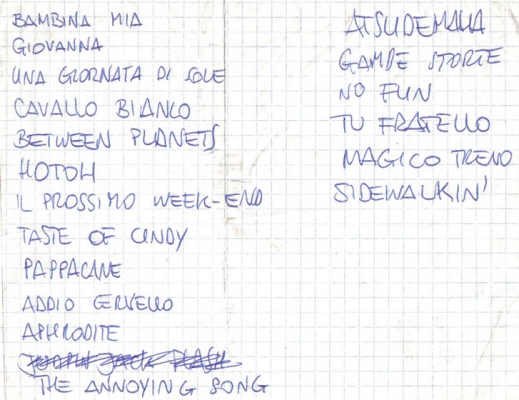 BAMBINA MIA
GIOVANNA
UNA GIORNATA DI SOLE
CAVALLO BIANCO
BETWEEN PLANETS
HOTOLI
IL PROSSIMO WEEK-END
TASTE OF CINDY
PAPPACANE
ADDIO CERVELLO
APHRODITE
JACK FLASH
THE ANNOYING SONG
ATSUDEMAHA
GAMBE STORTE
NO FUN
TU FRATELLO
MAGICO TRENO
SIDEWALKIN'